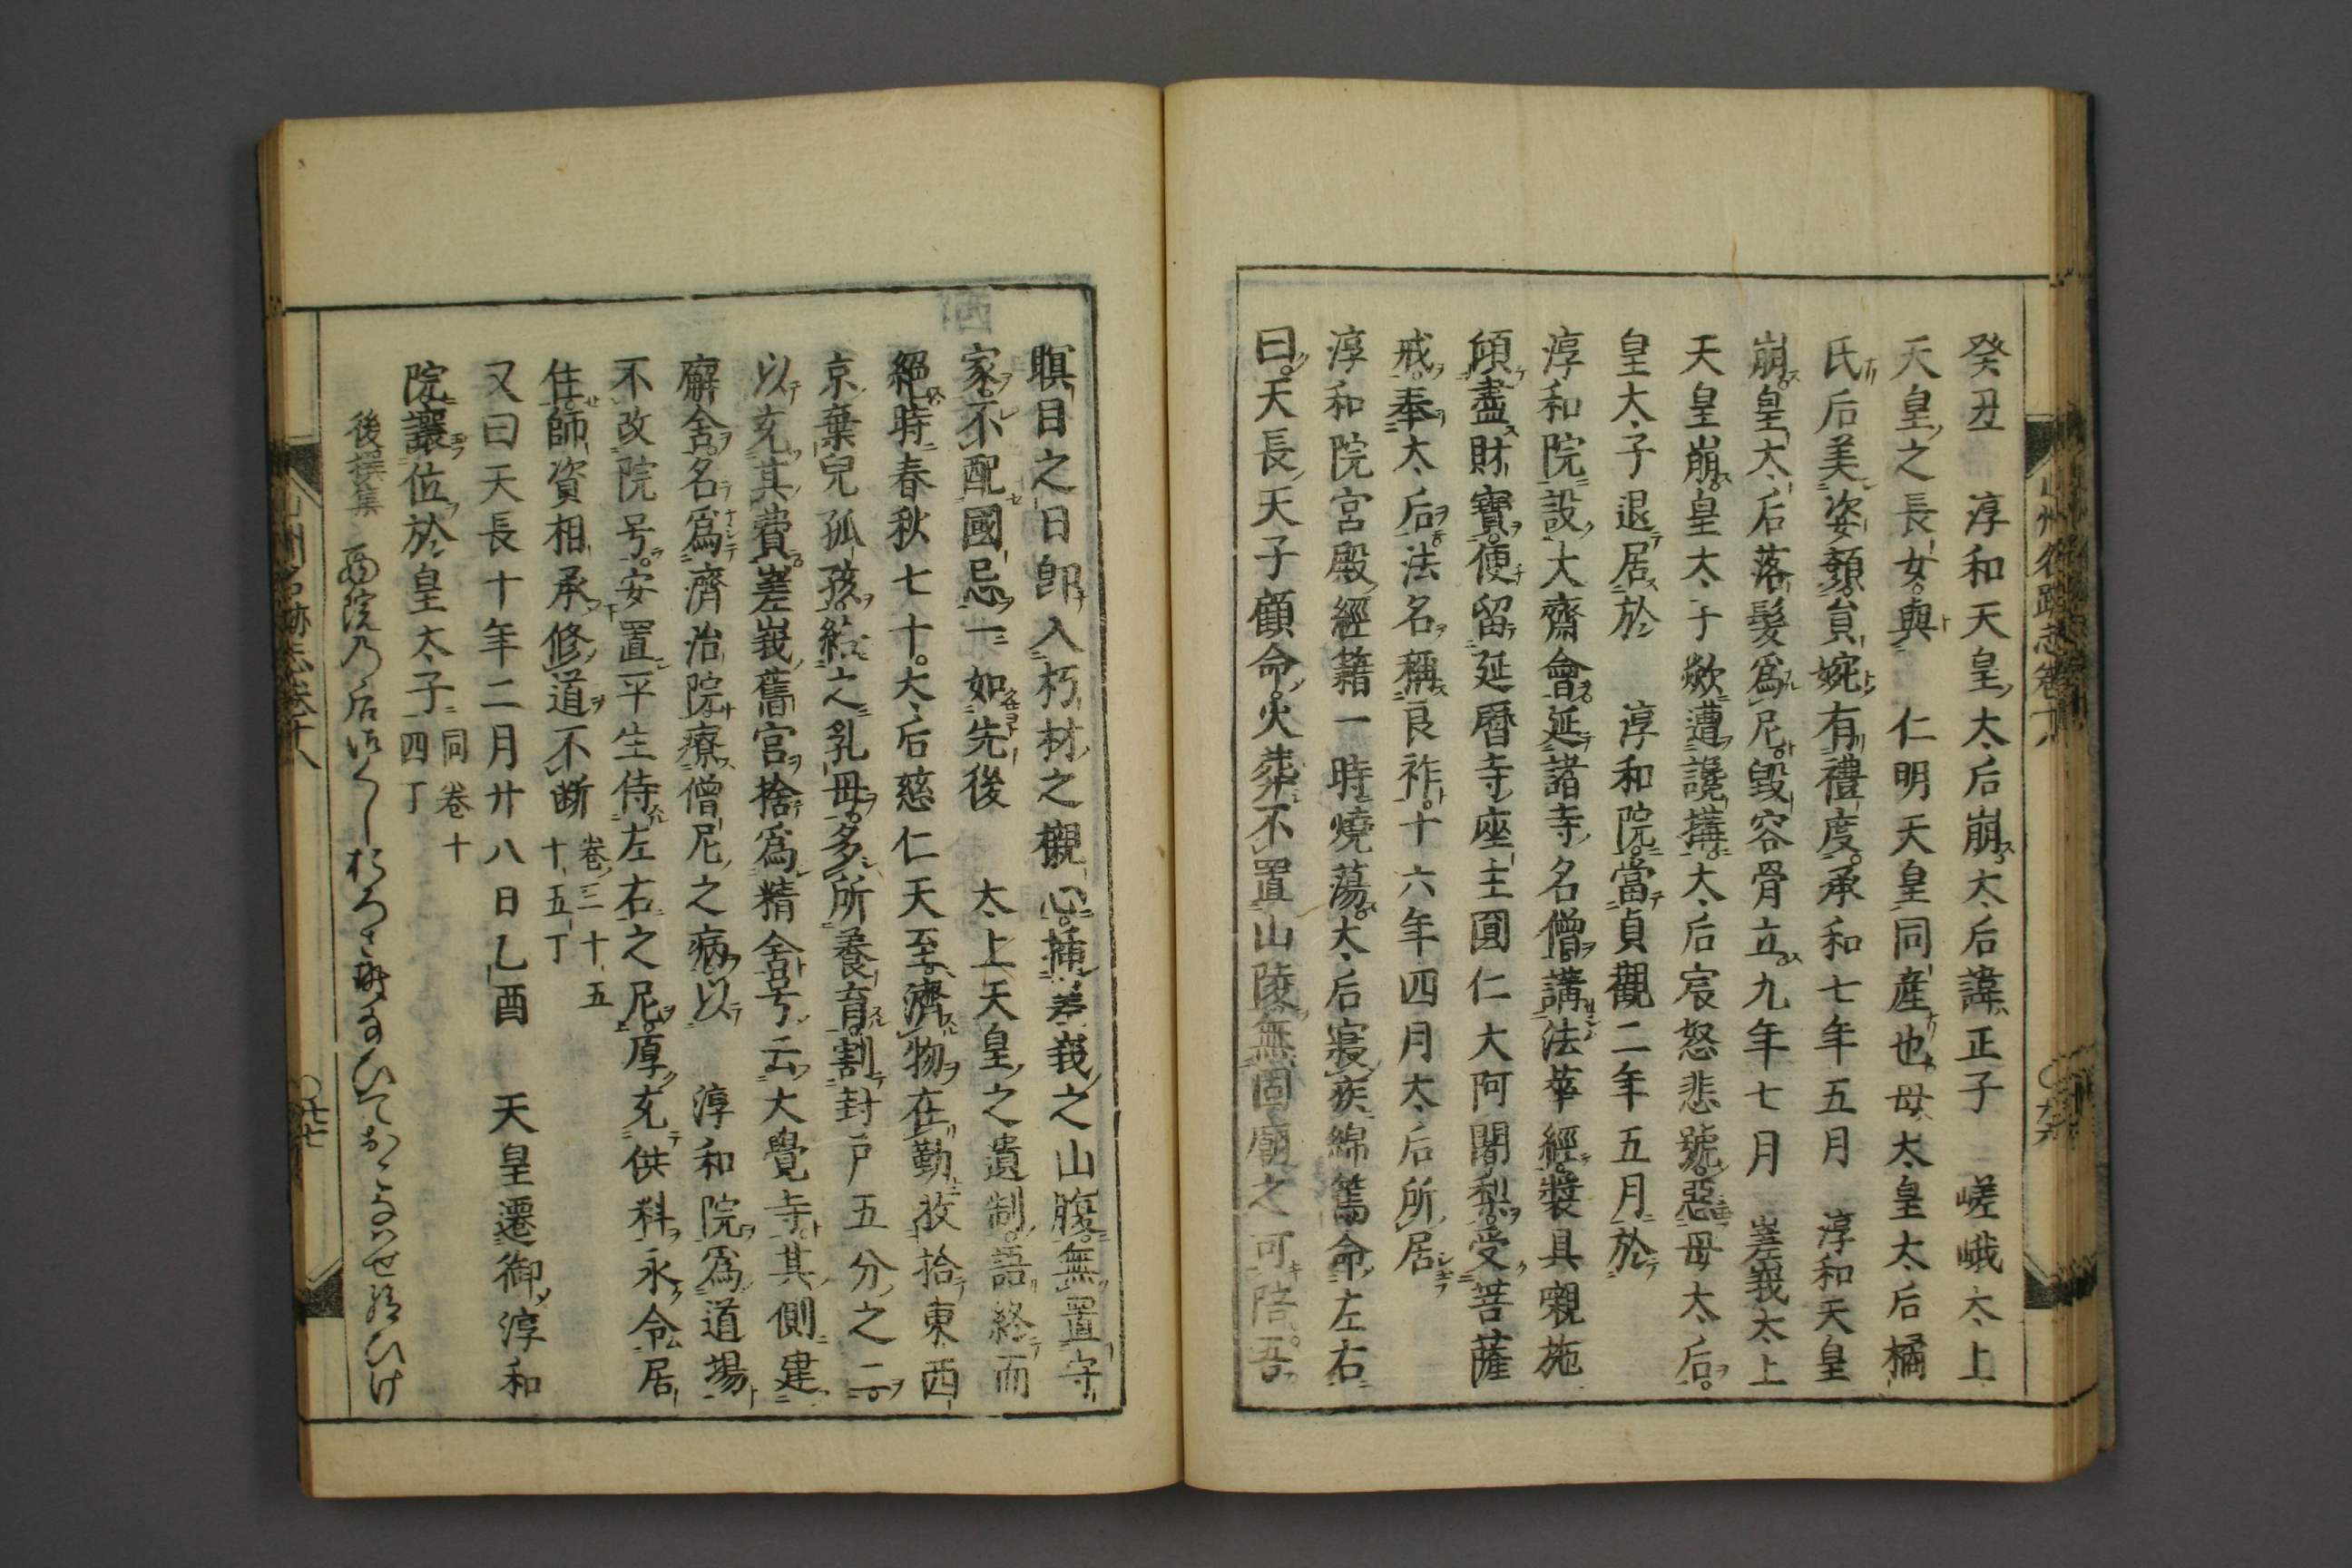 癸丑　淳和天皇太后崩太后諱正子　嵯峨太上
天皇之長女與　仁明天皇同産也母太皇太后橘
氏后美姿顔貟婉有禮度承和七年五月　淳和天皇
崩皇太后落髪爲尼毀容骨立九年七月　嵳峩太上
天皇崩皇太子欻遭讒搆太后宸怒悲號惡母太后
皇太子退居於　淳和院當貞觀二年五月於
淳和院設大齋會延諸寺名僧講法華經裝具嚫施
傾盡財寶便留延暦寺座主圓仁大阿闍梨受菩薩
戒奉太后法名稱良祚十六年四月太后所居
淳和院宮殿經籍一時燒蕩太后寢疾綿篤命左右
曰天長天子顧命火葬不置山陵無固廟之可陪吾
瞑目之日卽入朽材之櫬心揷嵳峩之山腹無置守
家不配國忌一如先後　太上天皇之遺制語終而
絕時春秋七十太后慈仁天至濟物在勤收拾東西
京棄兒孤孩給之乳母多所養育割封戸五分之二
以充其費嵳峩舊宮捨爲精舍号云大覺寺其側建
廨舍名爲濟治院療僧尼之病以　淳和院爲道場
不改院号安置平生侍左右之尼厚充供料永令居
住師資相承修道不断　卷三十五　十五丁
又曰天長十年二月廿八日乙酉　天皇遷御淳和
院讓位於皇太子　同卷十　四丁
後撰集　西院の后
山州名跡志卷十八